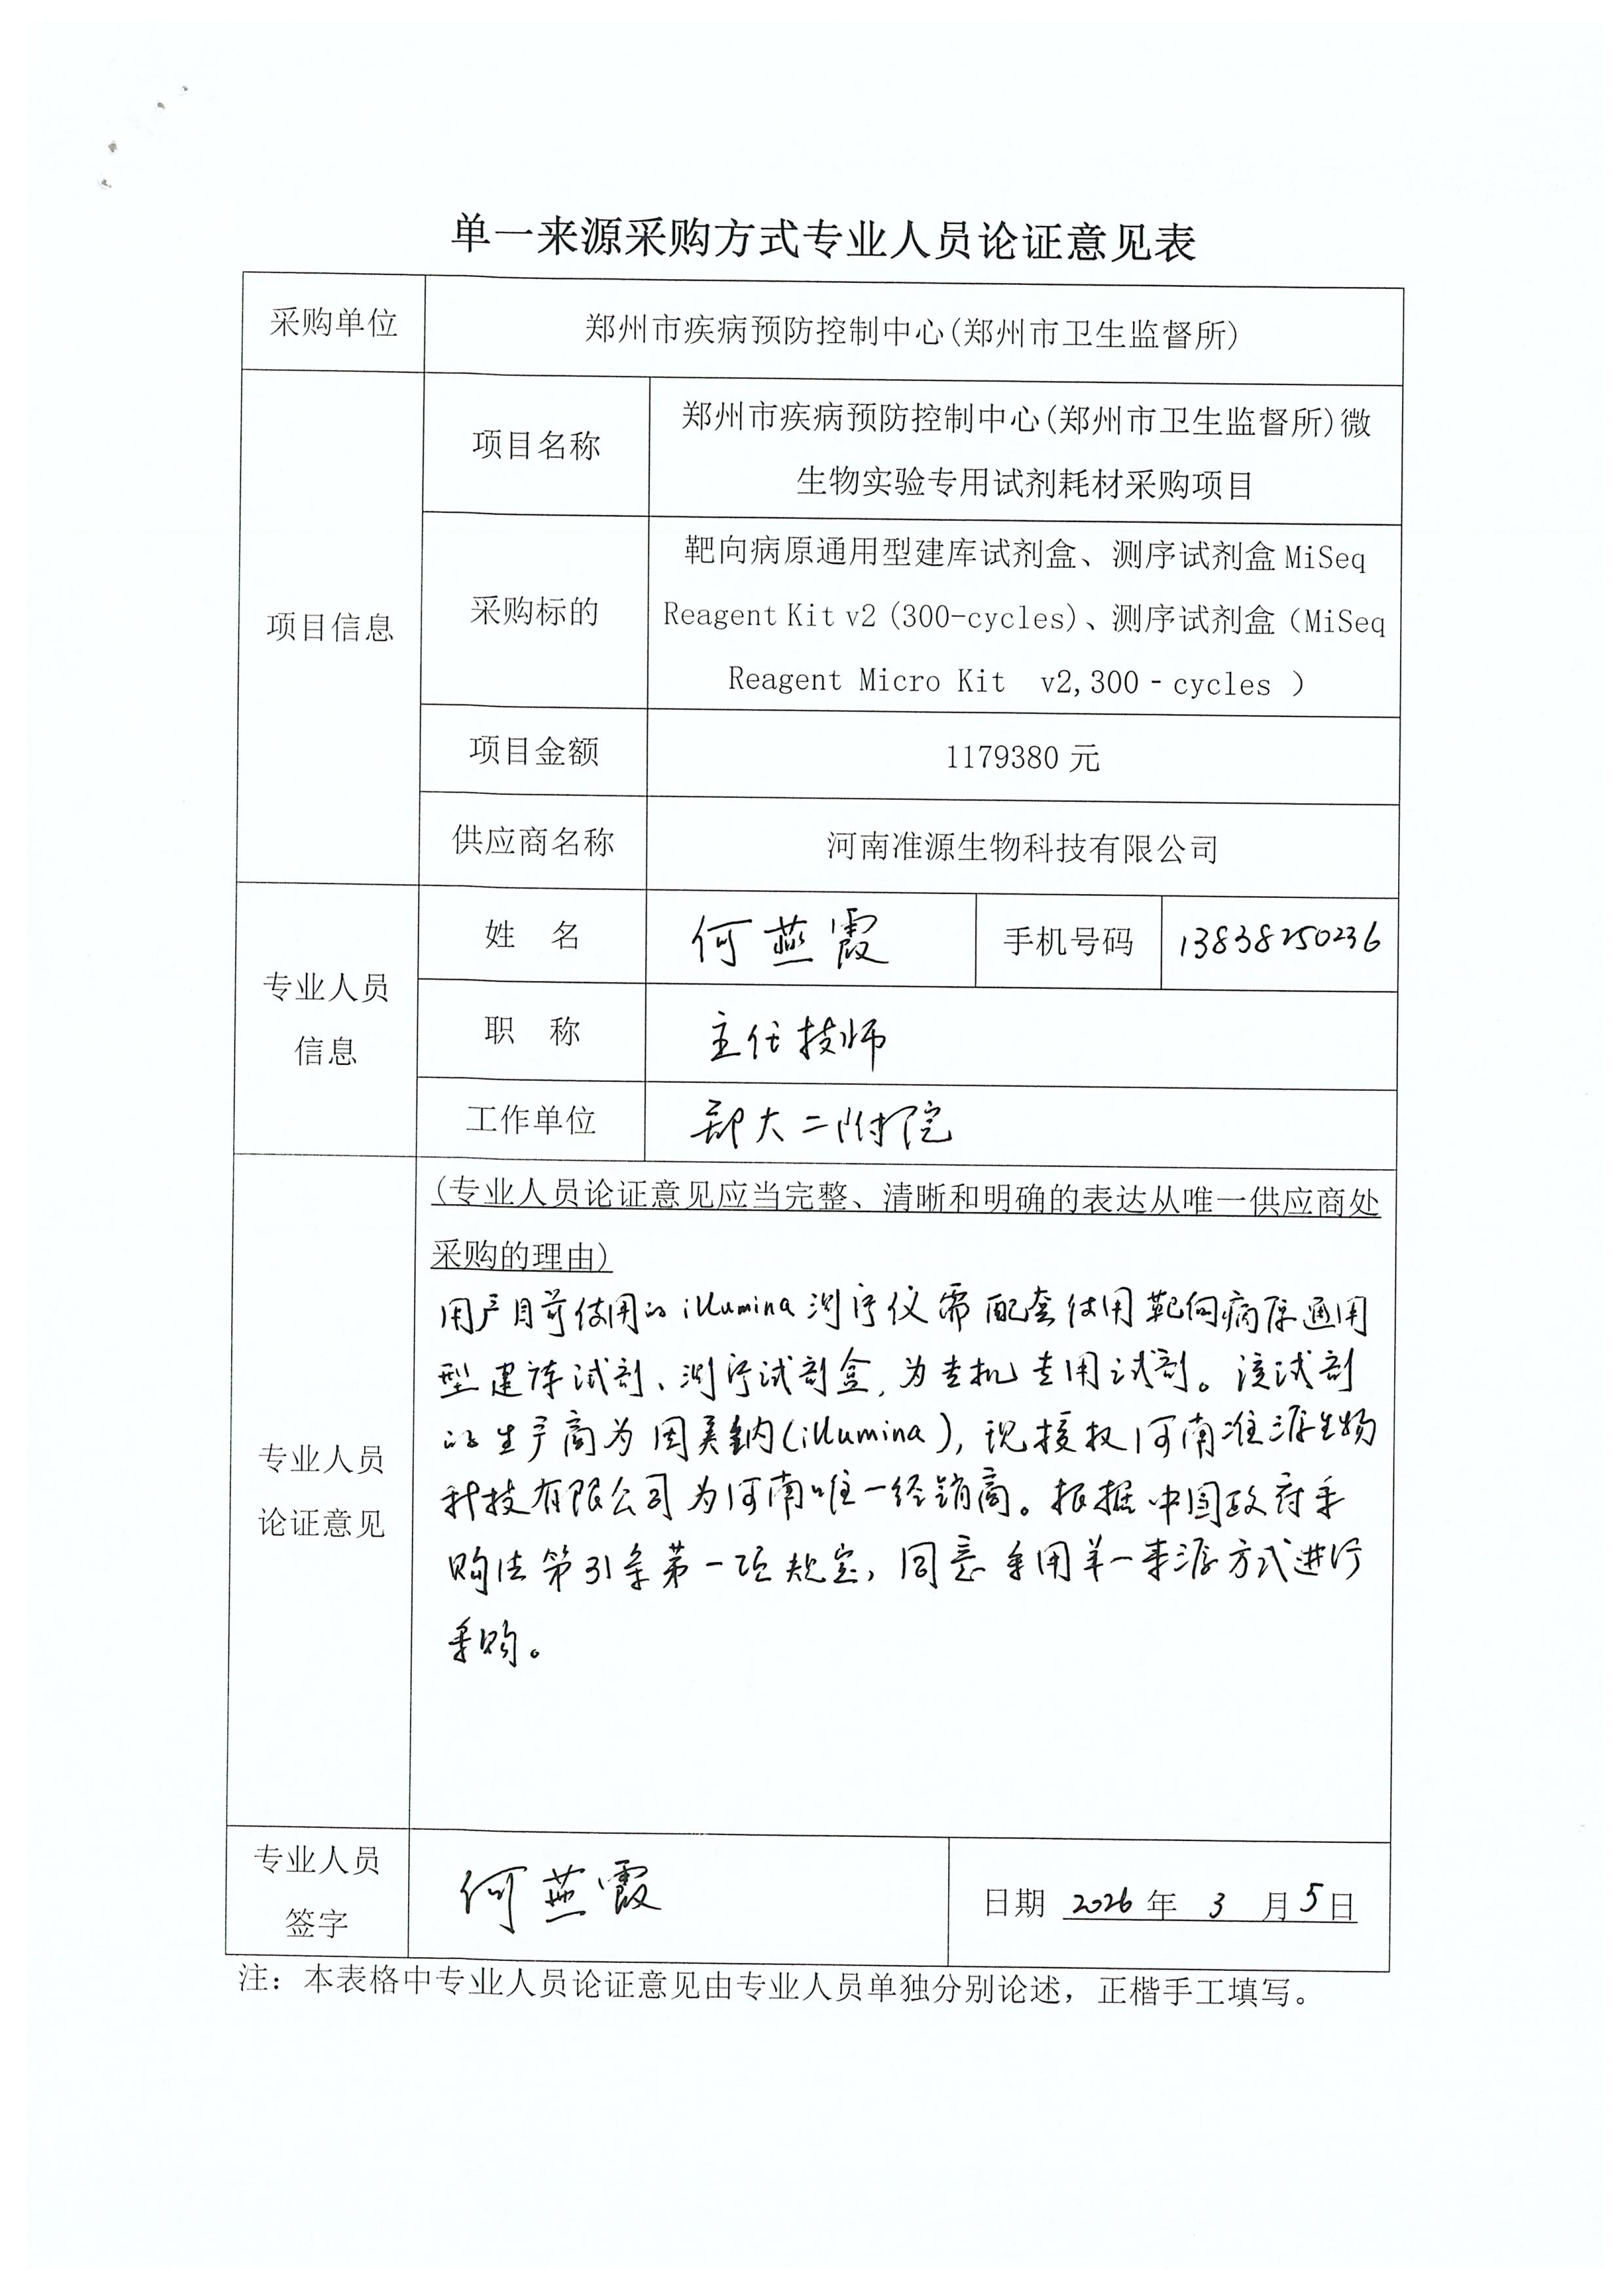 单一来源采购方式专业人员论证意见表
采购单位
郑州市疾病预防控制中心(郑州市卫生监督所)
项目信息
项目名称
郑州市疾病预防控制中心(郑州市卫生监督所)微
生物实验专用试剂耗材采购项目
采购标的
靶向病原通用型建库试剂盒、测序试剂盒 MiSeq
Reagent Kit v2 (300-cycles)、测序试剂盒（MiSeq
Reagent Micro Kit v2,300‐cycles ）
项目金额
1179380 元
供应商名称
河南准源生物科技有限公司
专业人员
信息
姓 名
何燕霞
手机号码
13838250236
职 称
主任技师
工作单位
郑大二附院
专业人员
论证意见
(专业人员论证意见应当完整、清晰和明确的表达从唯一供应商处
采购的理由)
用户目前使用的illumina测序仪需配套使用靶向病原通用
型建库试剂、测序试剂盒,为专机专用试剂。该试剂
的生产商为因美纳(illumina),现授权河南准源生物
科技有限公司为河南唯一经销商。根据中国政府采
购法第31条第一项规定,同意采用单一来源方式进行
采购。
专业人员
签字
何燕霞
日期 2026 年 3 月 5 日
注：本表格中专业人员论证意见由专业人员单独分别论述，正楷手工填写。